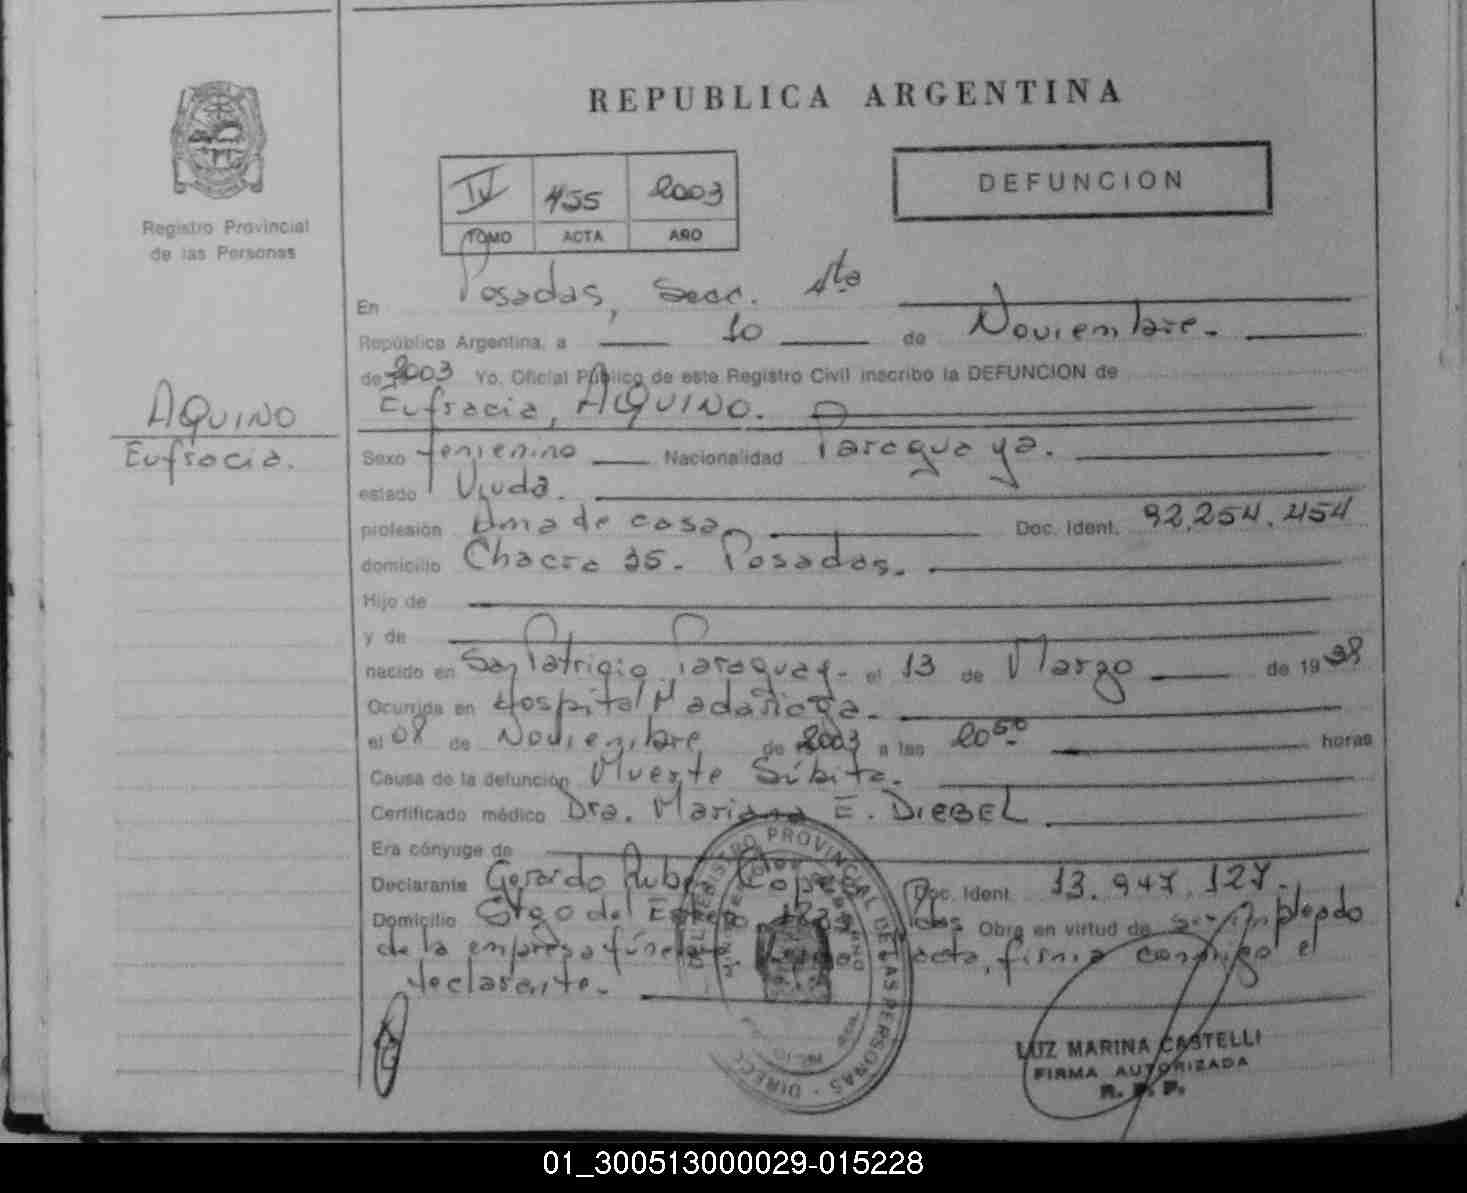 REPUBLICA ARGENTINA
Registro Provincial
de las Personas
IV 455 2003
TOMO ACTA AÑO
DEFUNCION
AQUINO
Eufracia.
En Posadas, Secc. 4ta
República Argentina, a 10 de Noviembre.
de 2003 Yo, Oficial Público de este Registro Civil inscribo la DEFUNCION de
Eufracia, AQUINO.
Sexo femenino Nacionalidad Paraguaya.
estado Viuda.
profesión Ama de casa Doc. Ident. 92.254.454
domicilio Chacra 35. Posadas.
Hijo de
y de
nacido en San Patricio Paraguay. el 13 de Marzo de 1938
Ocurrida en Hospital Madariaga.
el 08 de Noviembre de 2003 a las 20 50 horas
Causa de la defunción Muerte Súbita.
Certificado médico Dra. Mariana E. DIEBEL
Era cónyuge de
Declarante Gerardo Rubén Doc. Ident. 13.947.127.
Domicilio Stgo del Estero Obra en virtud de ser Empleado
de la empresa fúnebre acta, firma conmigo el
declarante.
REGISTRO PROVINCIAL DE LAS PERSONAS
LUZ MARINA CASTELLI
FIRMA AUTORIZADA
R. P. P.
01_300513000029-015228